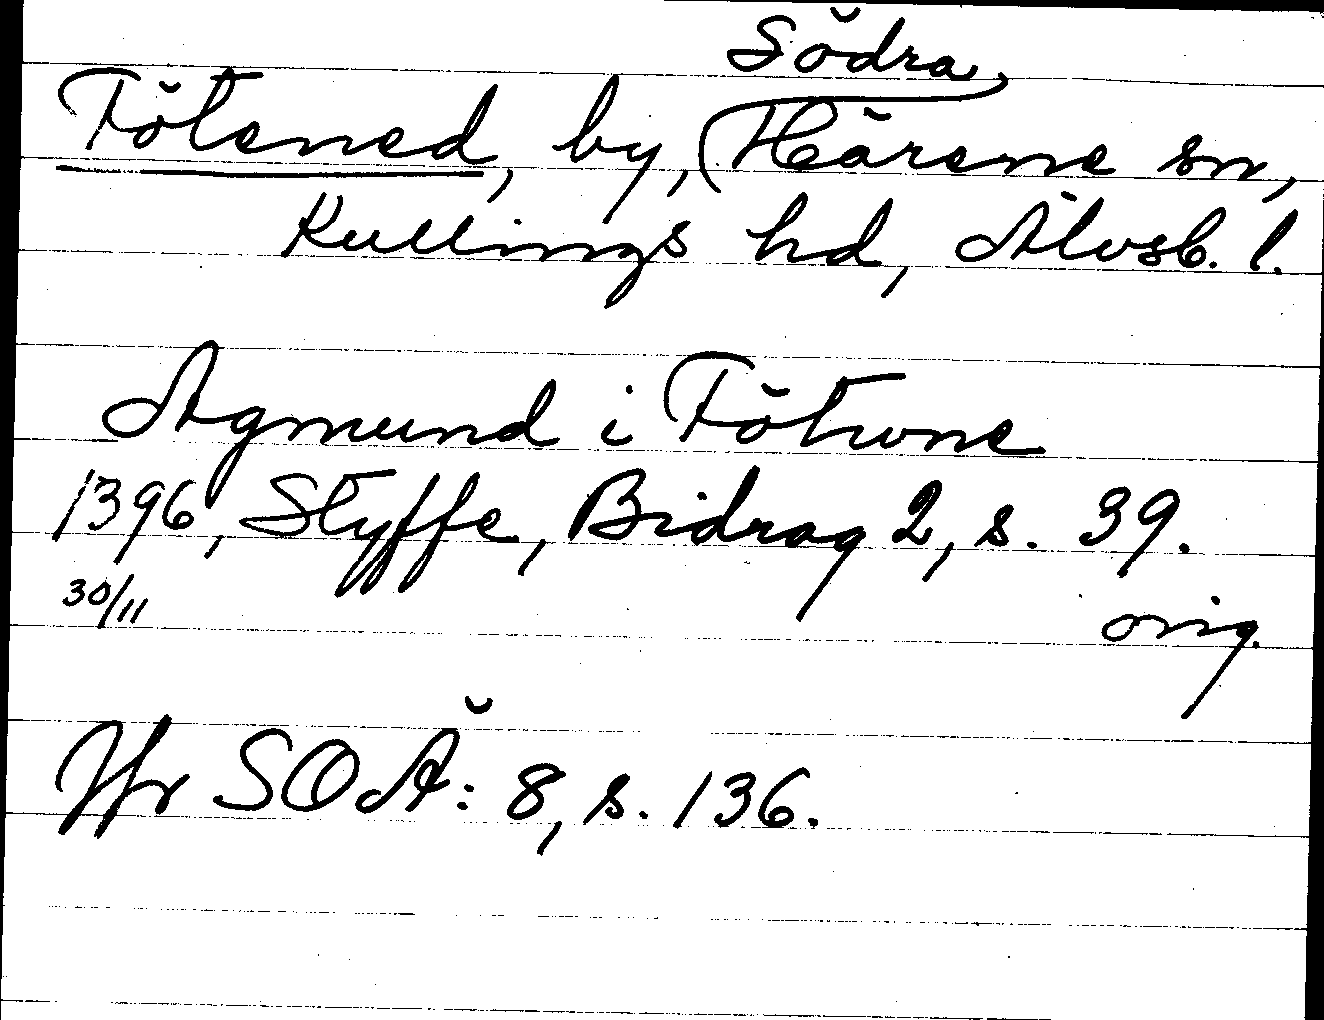 Södra
Fötened, by, Härene sn,
Kullings hd, Älvsb. l.
Agmund i Fötwne
1396, Styffe, Bidrag 2, s. 39.
30/11 orig.
Jfr SOÄ: 8, s. 136.